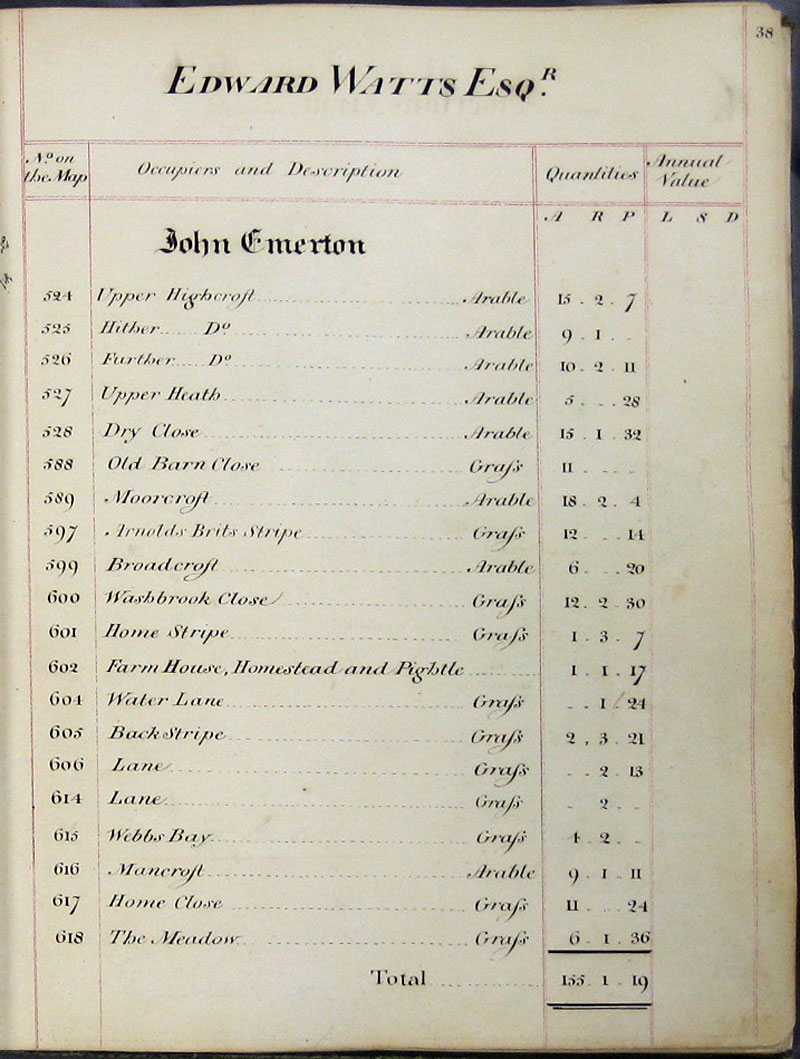 38
EDWARD WATTS ESQR.
No. on the Map Occupiers and Description Quantities Annual Value
A R P L S D
John Emerton
524 Upper Highcroft Arable 15 . 2 . 7
525 Hither Do. Arable 9 . 1 . .
526 Further Do. Arable 10 . 2 . 11
527 Upper Heath Arable 5 . . . 28
528 Dry Close Arable 15 . 1 . 32
588 Old Barn Close Graſs 11 . . .
589 Moorcroft Arable 18 . 2 . 4
597 Arnolds Brits Stripe Graſs 12 . . 14
599 Broadcroft Arable 6 . . . 20
600 Washbrook Close Graſs 12 . 2 . 30
601 Home Stripe Graſs 1 . 3 . 7
602 Farm House, Homestead and Pightle 1 . 1 . 17
604 Water Lane Graſs . . 1 . 24
605 Back Stripe Graſs 2 . 3 . 21
606 Lane Graſs . . 2 . 13
614 Lane Graſs . 2 . .
615 Webbs Bay Graſs 4 . 2 . .
616 Mancroft Arable 9 . 1 . 11
617 Home Close Graſs 11 . . . 24
618 The Meadow Graſs 6 . 1 . 36
Total 155 . 1 . 19